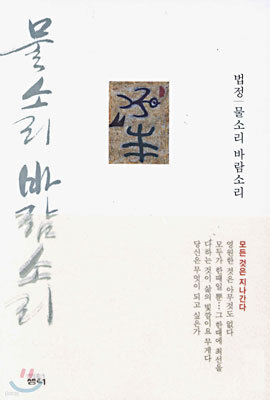 물소리 바람소리
법정 | 물소리 바람소리
모든 것은 지나간다
영원한 것은 아무것도 없다
모두가 한때일 뿐… 그 한때에 최선을
다하는 것이 삶의 빛깔이요 무게다
당신은 무엇이 되고 싶은가
샘터